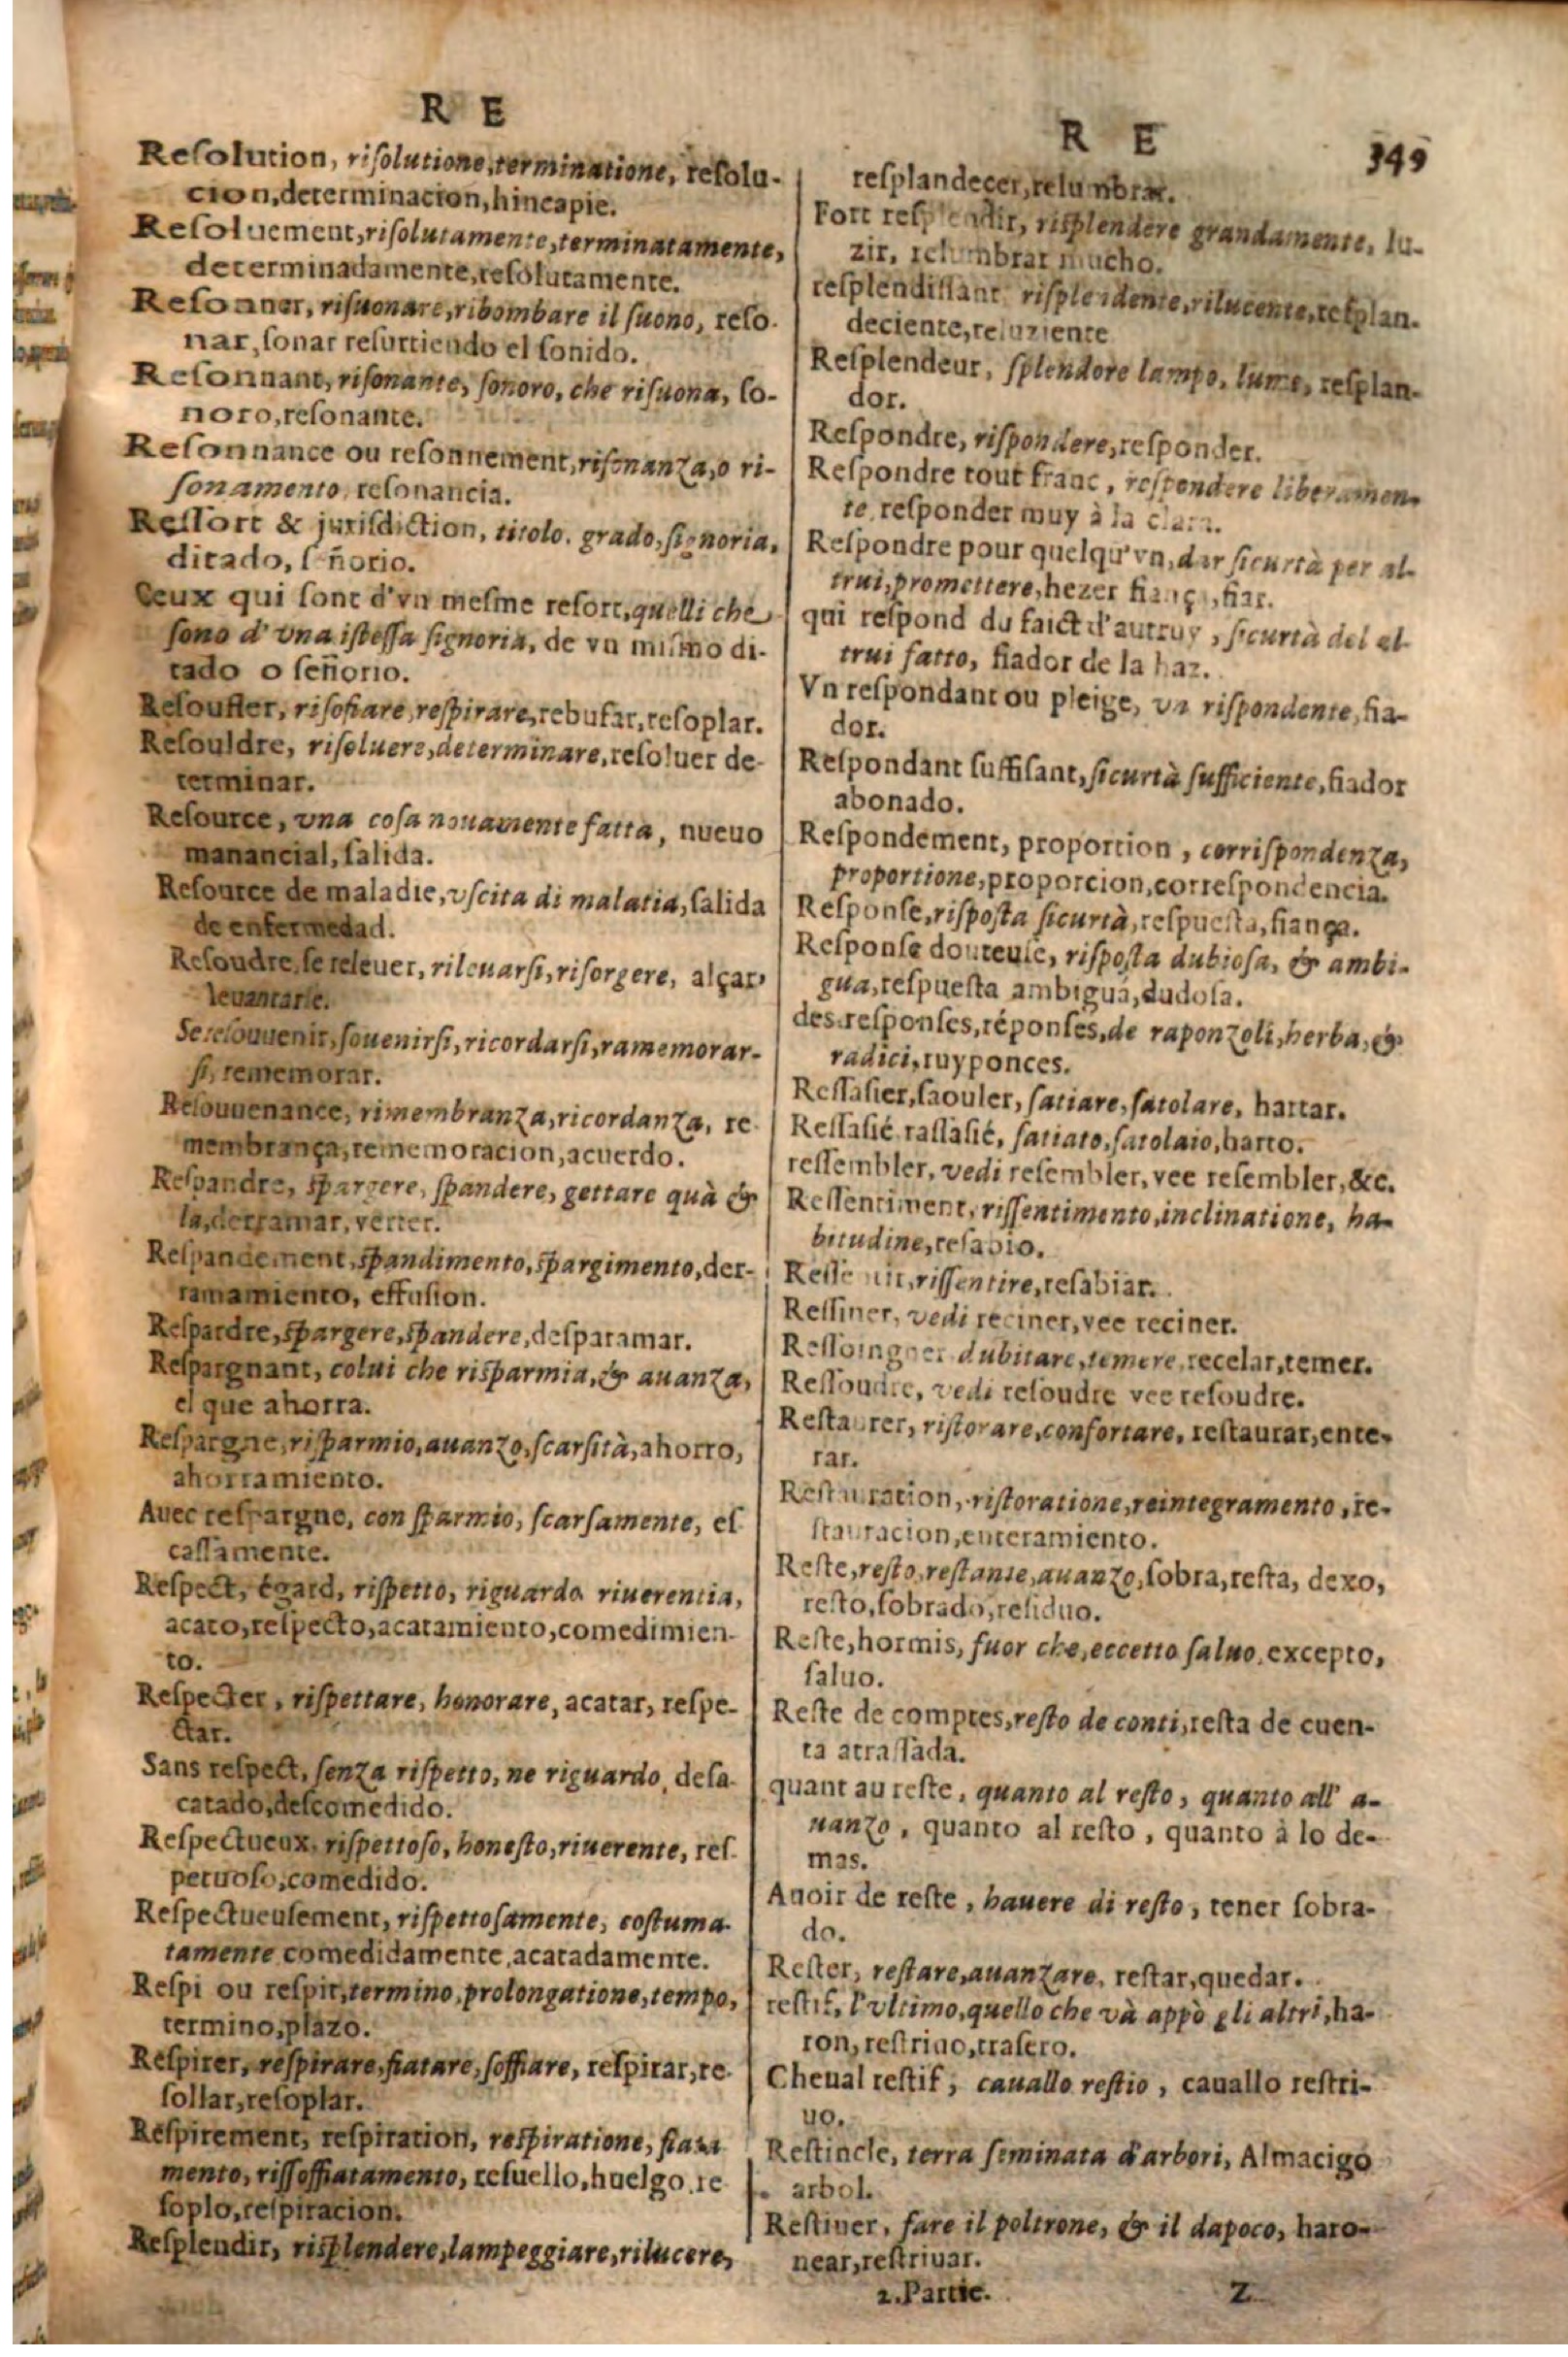 R E
Reſolution, riſolutione, terminatione, reſolu-
cion, determinacion, hincapie.
Reſoluement, riſolutamente, terminatamente,
determinadamente, reſolutamente.
Reſonner, riſuonare, ribombare il ſuono, reſo-
nar, ſonar reſurtiendo el ſonido.
Reſonnant, riſonante, ſonoro, che riſuona, ſo-
noro, reſonante.
Reſonnance ou reſonnement, riſonanza, o ri-
ſonamento, reſonancia.
Reſſort & juriſdiction, titolo, grado, ſignoria,
ditado, ſeñorio.
Ceux qui ſont d'vn meſme reſort, quelli che
ſono d'vna iſteſſa ſignoria, de vn miſmo di-
tado o ſeñorio.
Reſouffler, riſofiare, reſpirare, rebufar, reſoplar.
Reſouldre, riſoluere, determinare, reſoluer de-
terminar.
Reſource, vna coſa nouamente fatta, nueuo
manancial, ſalida.
Reſource de maladie, vſcita di malatia, ſalida
de enfermedad.
Reſoudre, ſe releuer, rileuarſi, riſorgere, alçar,
leuantarſe.
Se reſouuenir, ſouenirſi, ricordarſi, ramemorar-
ſi, rememorar.
Reſouuenance, rimembranza, ricordanza, re-
membrança, rememoracion, acuerdo.
Reſpandre, ſpargere, ſpandere, gettare quà &
la, derramar, verter.
Reſpandement, ſpandimento, ſpargimento, der-
ramamiento, effuſion.
Reſpardre, ſpargere, ſpandere, deſparamar.
Reſpargnant, colui che riſparmia, & auanza,
el que ahorra.
Reſpargne, riſparmio, auanzo, ſcarſità, ahorro,
ahorramiento.
Auec reſpargne, con ſparmio, ſcarſamente, eſ-
caſſamente.
Reſpect, égard, riſpetto, riguardo riuerentia,
acato, reſpecto, acatamiento, comedimien-
to.
Reſpecter, riſpettare, honorare, acatar, reſpe-
ctar.
Sans reſpect, ſenza riſpetto, ne riguardo, deſa-
catado, deſcomedido.
Reſpectueux, riſpettoſo, honeſto, riuerente, reſ-
petuoſo, comedido.
Reſpectueuſement, riſpettoſamente, coſtuma-
tamente comedidamente, acatadamente.
Reſpi ou reſpit, termino, prolongatione, tempo,
termino, plazo.
Reſpirer, reſpirare, fiatare, ſoffiare, reſpirar, re-
ſollar, reſoplar.
Reſpirement, reſpiration, reſpiratione, fiata-
mento, riſſoffiatamento, reſuello, huelgo, re-
ſoplo, reſpiracion.
Reſplendir, riſplendere, lampeggiare, rilucere,
R E 349
reſplandecer, relumbrar.
Fort reſplendir, riſplendere grandamente, lu-
zir, relumbrar mucho.
reſplendiſſant, riſplendente, rilucente, reſplan-
deciente, reluziente
Reſplendeur, ſplendore lampo, lume, reſplan-
dor.
Reſpondre, riſpondere, reſponder.
Reſpondre tout franc, reſpondere liberamen-
te, reſponder muy à la clara.
Reſpondre pour quelqu'vn, dar ſicurtà per al-
trui, promettere, hezer fiança, fiar.
qui reſpond du faict d'autruy, ſicurtà del al-
trui fatto, fiador de la haz.
Vn reſpondant ou pleige, vn riſpondente, fia-
dor.
Reſpondant ſuffiſant, ſicurtà ſufficiente, fiador
abonado.
Reſpondement, proportion, corriſpondenza,
proportione, proporcion, correſpondencia.
Reſponſe, riſpoſta ſicurtà, reſpueſta, fiança.
Reſponſe douteuſe, riſpoſta dubioſa, & ambi-
gua, reſpueſta ambigua, dudoſa.
des reſponſes, réponſes, de raponzoli, herba, &
radici, ruyponces.
Reſſaſier, ſaouler, ſatiare, ſatolare, hartar.
Reſſaſié raſſaſié, ſatiato, ſatolaio, harto.
reſſembler, vedi reſembler, vee reſembler, &c.
Reſſentiment, riſſentimento, inclinatione, ha-
bitudine, reſabio.
Reſſentir, riſſentire, reſabiar.
Reſſiner, vedi reciner, vee reciner.
Reſſoingner dubitare, temere, recelar, temer.
Reſſoudre, vedi reſoudre vee reſoudre.
Reſtaurer, riſtorare, confortare, reſtaurar, ente-
rar.
Reſtauration, riſtoratione, reintegramento, re-
ſtauracion, enteramiento.
Reſte, reſto, reſtante, auanzo, ſobra, reſta, dexo,
reſto, ſobrado, reſiduo.
Reſte, hormis, fuor che, eccetto ſaluo, excepto,
ſaluo.
Reſte de comptes, reſto de conti, reſta de cuen-
ta atraſſada.
quant au reſte, quanto al reſto, quanto all' a-
uanzo, quanto al reſto, quanto à lo de-
mas.
Auoir de reſte, hauere di reſto, tener ſobra-
do.
Reſter, reſtare, auanzare, reſtar, quedar.
reſtif, l'vltimo, quello che và appò gli altri, ha-
ron, reſtriuo, traſero.
Cheual reſtif, cauallo reſtio, cauallo reſtri-
uo.
Reſtincle, terra ſeminata d'arbori, Almacigo
arbol.
Reſtiuer, fare il poltrone, & il dapoco, haro-
near, reſtriuar.
2. Partie. Z